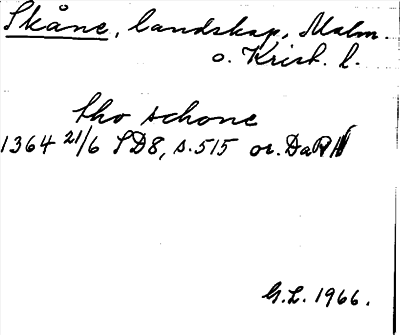 Skåne, landskap, Malm.
o. Krist. l.
tho schone
1364 21/6 SD8, s. 515 or. DaRA
G.L. 1966.